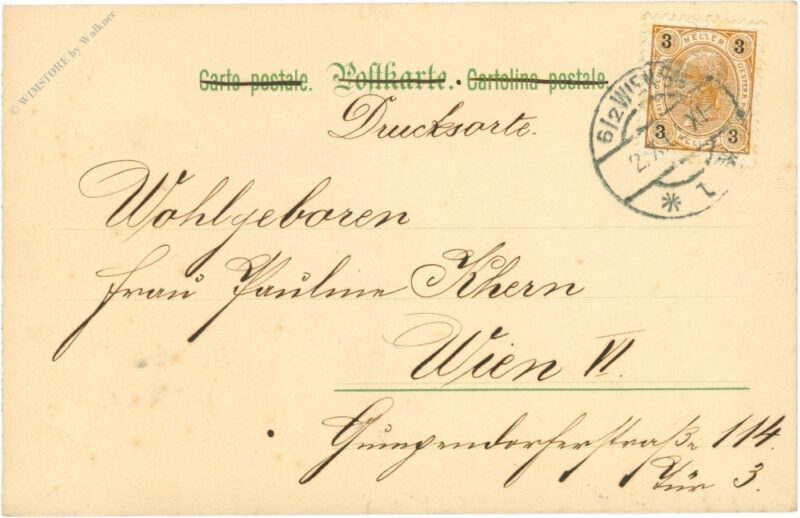 © WIMSTORE by Walkner
Carte postale. Postkarte. Cartolina postale.
Drucksorte.
3 HELLER 3
3 3
6/2 WIEN
1
Wohlgeboren
Frau Pauline Khern
Wien VI.
Gumpendorferstraße 114.
Tür 3.